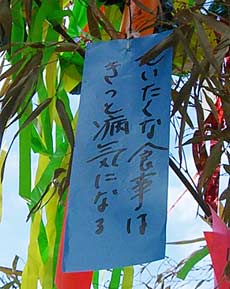 ぜいたくな食事は
きっと病気になる